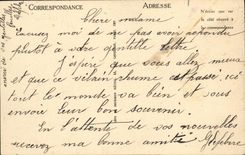 CORRESPONDANCE
ADRESSE
Chère madame
Excusez moi de ne pas avoir répondu
plutôt à votre gentille lettre
J'espère que vous allez mieux
et que ce vilain rhume est passé, ici
tout le monde va bien et vous
envoie leur bon souvenir.
En l'attente de vos nouvelles
recevez ma bonne amitié
N'écrire que sur